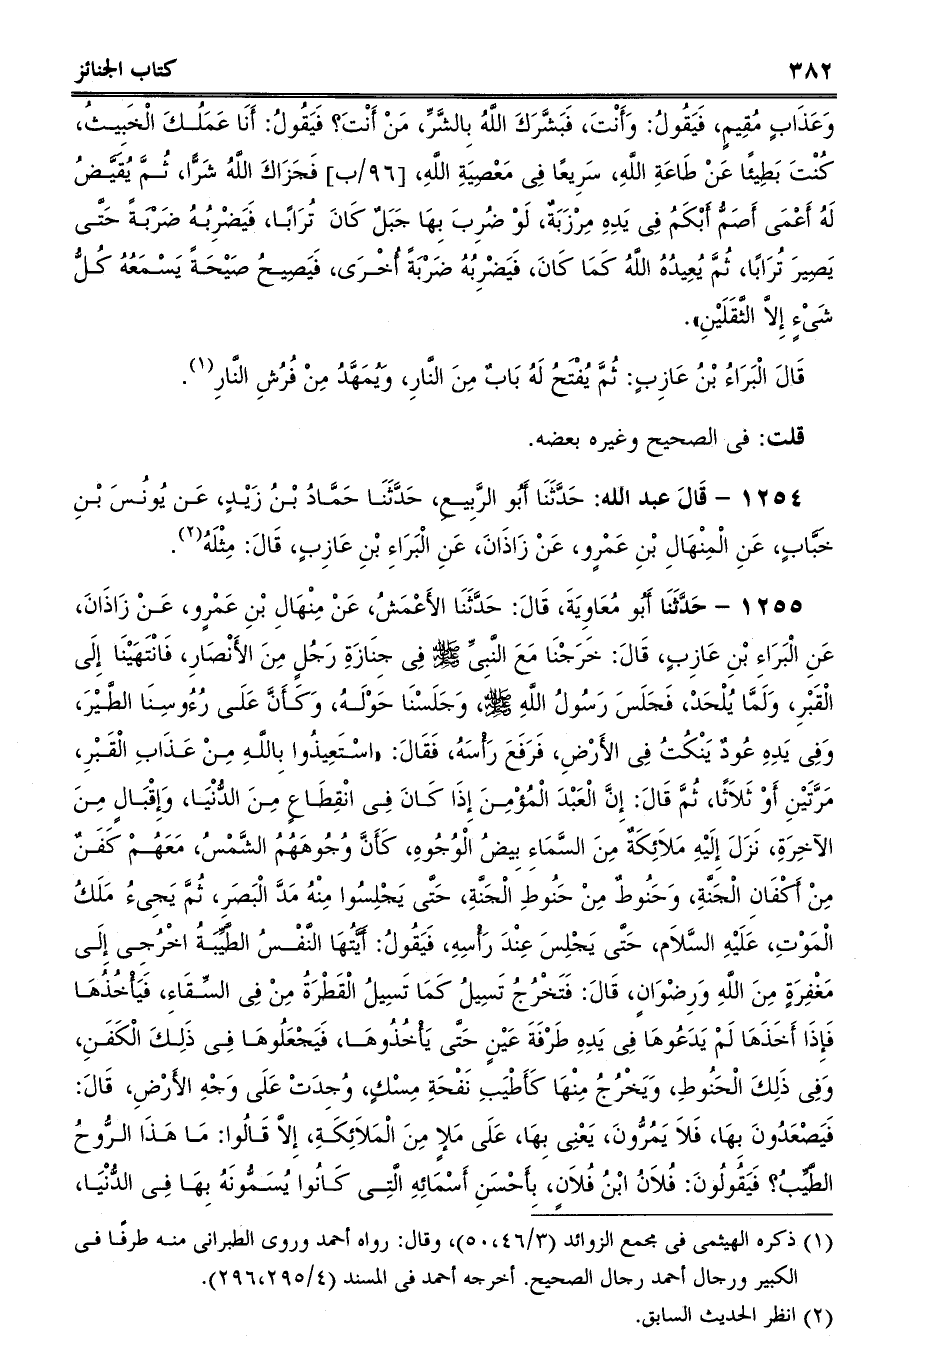 ٣٨٢ كتاب الجنائز
وَعَذَابٍ مُقِيمٍ، فَيَقُولُ: وَأَنْتَ، فَبَشَّرَكَ اللَّهُ بِالشَّرِّ، مَنْ أَنْتَ؟ فَيَقُولُ: أَنَا عَمَلُكَ الْخَبِيثُ،
كُنْتَ بَطِيئًا عَنْ طَاعَةِ اللَّهِ، سَرِيعًا فِى مَعْصِيَةِ اللَّهِ، [٩٦/ب] فَجَزَاكَ اللَّهُ شَرًّا، ثُمَّ يُقَيَّضُ
لَهُ أَعْمَى أَصَمُّ أَبْكَمُ فِى يَدِهِ مِرْزَبَةٌ، لَوْ ضُرِبَ بِهَا جَبَلٌ كَانَ تُرَابًا، فَيَضْرِبُهُ ضَرْبَةً حَتَّى
يَصِيرَ تُرَابًا، ثُمَّ يُعِيدُهُ اللَّهُ كَمَا كَانَ، فَيَضْرِبُهُ ضَرْبَةً أُخْرَى، فَيَصِيحُ صَيْحَةً يَسْمَعُهُ كُلُّ
شَىْءٍ إِلاَّ الثَّقَلَيْنِ».
قَالَ الْبَرَاءُ بْنُ عَازِبٍ: ثُمَّ يُفْتَحُ لَهُ بَابٌ مِنَ النَّارِ، وَيُمَهَّدُ مِنْ فُرُشِ النَّارِ(١).
قلت: فى الصحيح وغيره بعضه.
١٢٥٤ - قَالَ عبد الله: حَدَّثَنَا أَبُو الرَّبِيعِ، حَدَّثَنَا حَمَّادُ بْنُ زَيْدٍ، عَن يُونُسَ بْنِ
خَبَّابٍ، عَنِ الْمِنْهَالِ بْنِ عَمْرٍو، عَنْ زَاذَانَ، عَنِ الْبَرَاءِ بْنِ عَازِبٍ، قَالَ: مِثْلَهُ(٢).
١٢٥٥ - حَدَّثَنَا أَبُو مُعَاوِيَةَ، قَالَ: حَدَّثَنَا الأَعْمَشُ، عَنْ مِنْهَالِ بْنِ عَمْرٍو، عَنْ زَاذَانَ،
عَنِ الْبَرَاءِ بْنِ عَازِبٍ، قَالَ: خَرَجْنَا مَعَ النَّبِىِّ ﷺ فِى جِنَازَةِ رَجُلٍ مِنَ الأَنْصَارِ، فَانْتَهَيْنَا إِلَى
الْقَبْرِ، وَلَمَّا يُلْحَدْ، فَجَلَسَ رَسُولُ اللَّهِ ﷺ، وَجَلَسْنَا حَوْلَهُ، وَكَأَنَّ عَلَى رُءُوسِنَا الطَّيْرَ،
وَفِى يَدِهِ عُودٌ يَنْكُتُ فِى الأَرْضِ، فَرَفَعَ رَأْسَهُ، فَقَالَ: «اسْتَعِيذُوا بِاللَّهِ مِنْ عَذَابِ الْقَبْرِ،
مَرَّتَيْنِ أَوْ ثَلاَثًا، ثُمَّ قَالَ: إِنَّ الْعَبْدَ الْمُؤْمِنَ إِذَا كَانَ فِى انْقِطَاعٍ مِنَ الدُّنْيَا، وَإِقْبَالٍ مِنَ
الآخِرَةِ، نَزَلَ إِلَيْهِ مَلاَئِكَةٌ مِنَ السَّمَاءِ بِيضُ الْوُجُوهِ، كَأَنَّ وُجُوهَهُمُ الشَّمْسُ، مَعَهُمْ كَفَنٌ
مِنْ أَكْفَانِ الْجَنَّةِ، وَحَنُوطٌ مِنْ حَنُوطِ الْجَنَّةِ، حَتَّى يَجْلِسُوا مِنْهُ مَدَّ الْبَصَرِ، ثُمَّ يَجِىءُ مَلَكُ
الْمَوْتِ، عَلَيْهِ السَّلاَمُ، حَتَّى يَجْلِسَ عِنْدَ رَأْسِهِ، فَيَقُولُ: أَيَّتُهَا النَّفْسُ الطَّيِّبَةُ اخْرُجِى إِلَى
مَغْفِرَةٍ مِنَ اللَّهِ وَرِضْوَانٍ، قَالَ: فَتَخْرُجُ تَسِيلُ كَمَا تَسِيلُ الْقَطْرَةُ مِنْ فِى السِّقَاءِ، فَيَأْخُذُهَا
فَإِذَا أَخَذَهَا لَمْ يَدَعُوهَا فِى يَدِهِ طَرْفَةَ عَيْنٍ حَتَّى يَأْخُذُوهَا، فَيَجْعَلُوهَا فِى ذَلِكَ الْكَفَنِ،
وَفِى ذَلِكَ الْحَنُوطِ، وَيَخْرُجُ مِنْهَا كَأَطْيَبِ نَفْحَةِ مِسْكٍ، وُجِدَتْ عَلَى وَجْهِ الأَرْضِ، قَالَ:
فَيَصْعَدُونَ بِهَا، فَلاَ يَمُرُّونَ، يَعْنِى بِهَا، عَلَى مَلإٍ مِنَ الْمَلاَئِكَةِ، إِلاَّ قَالُوا: مَا هَذَا الرُّوحُ
الطَّيِّبُ؟ فَيَقُولُونَ: فُلاَنُ ابْنُ فُلاَنٍ، بِأَحْسَنِ أَسْمَائِهِ الَّتِى كَانُوا يُسَمُّونَهُ بِهَا فِى الدُّنْيَا،
(١) ذكره الهيثمى فى مجمع الزوائد (٥٠،٤٦/٣)، وقال: رواه أحمد وروى الطبرانى منه طرفًا فى
الكبير ورجال أحمد رجال الصحيح. أخرجه أحمد فى المسند (٢٩٦،٢٩٥/٤).
(٢) انظر الحديث السابق.